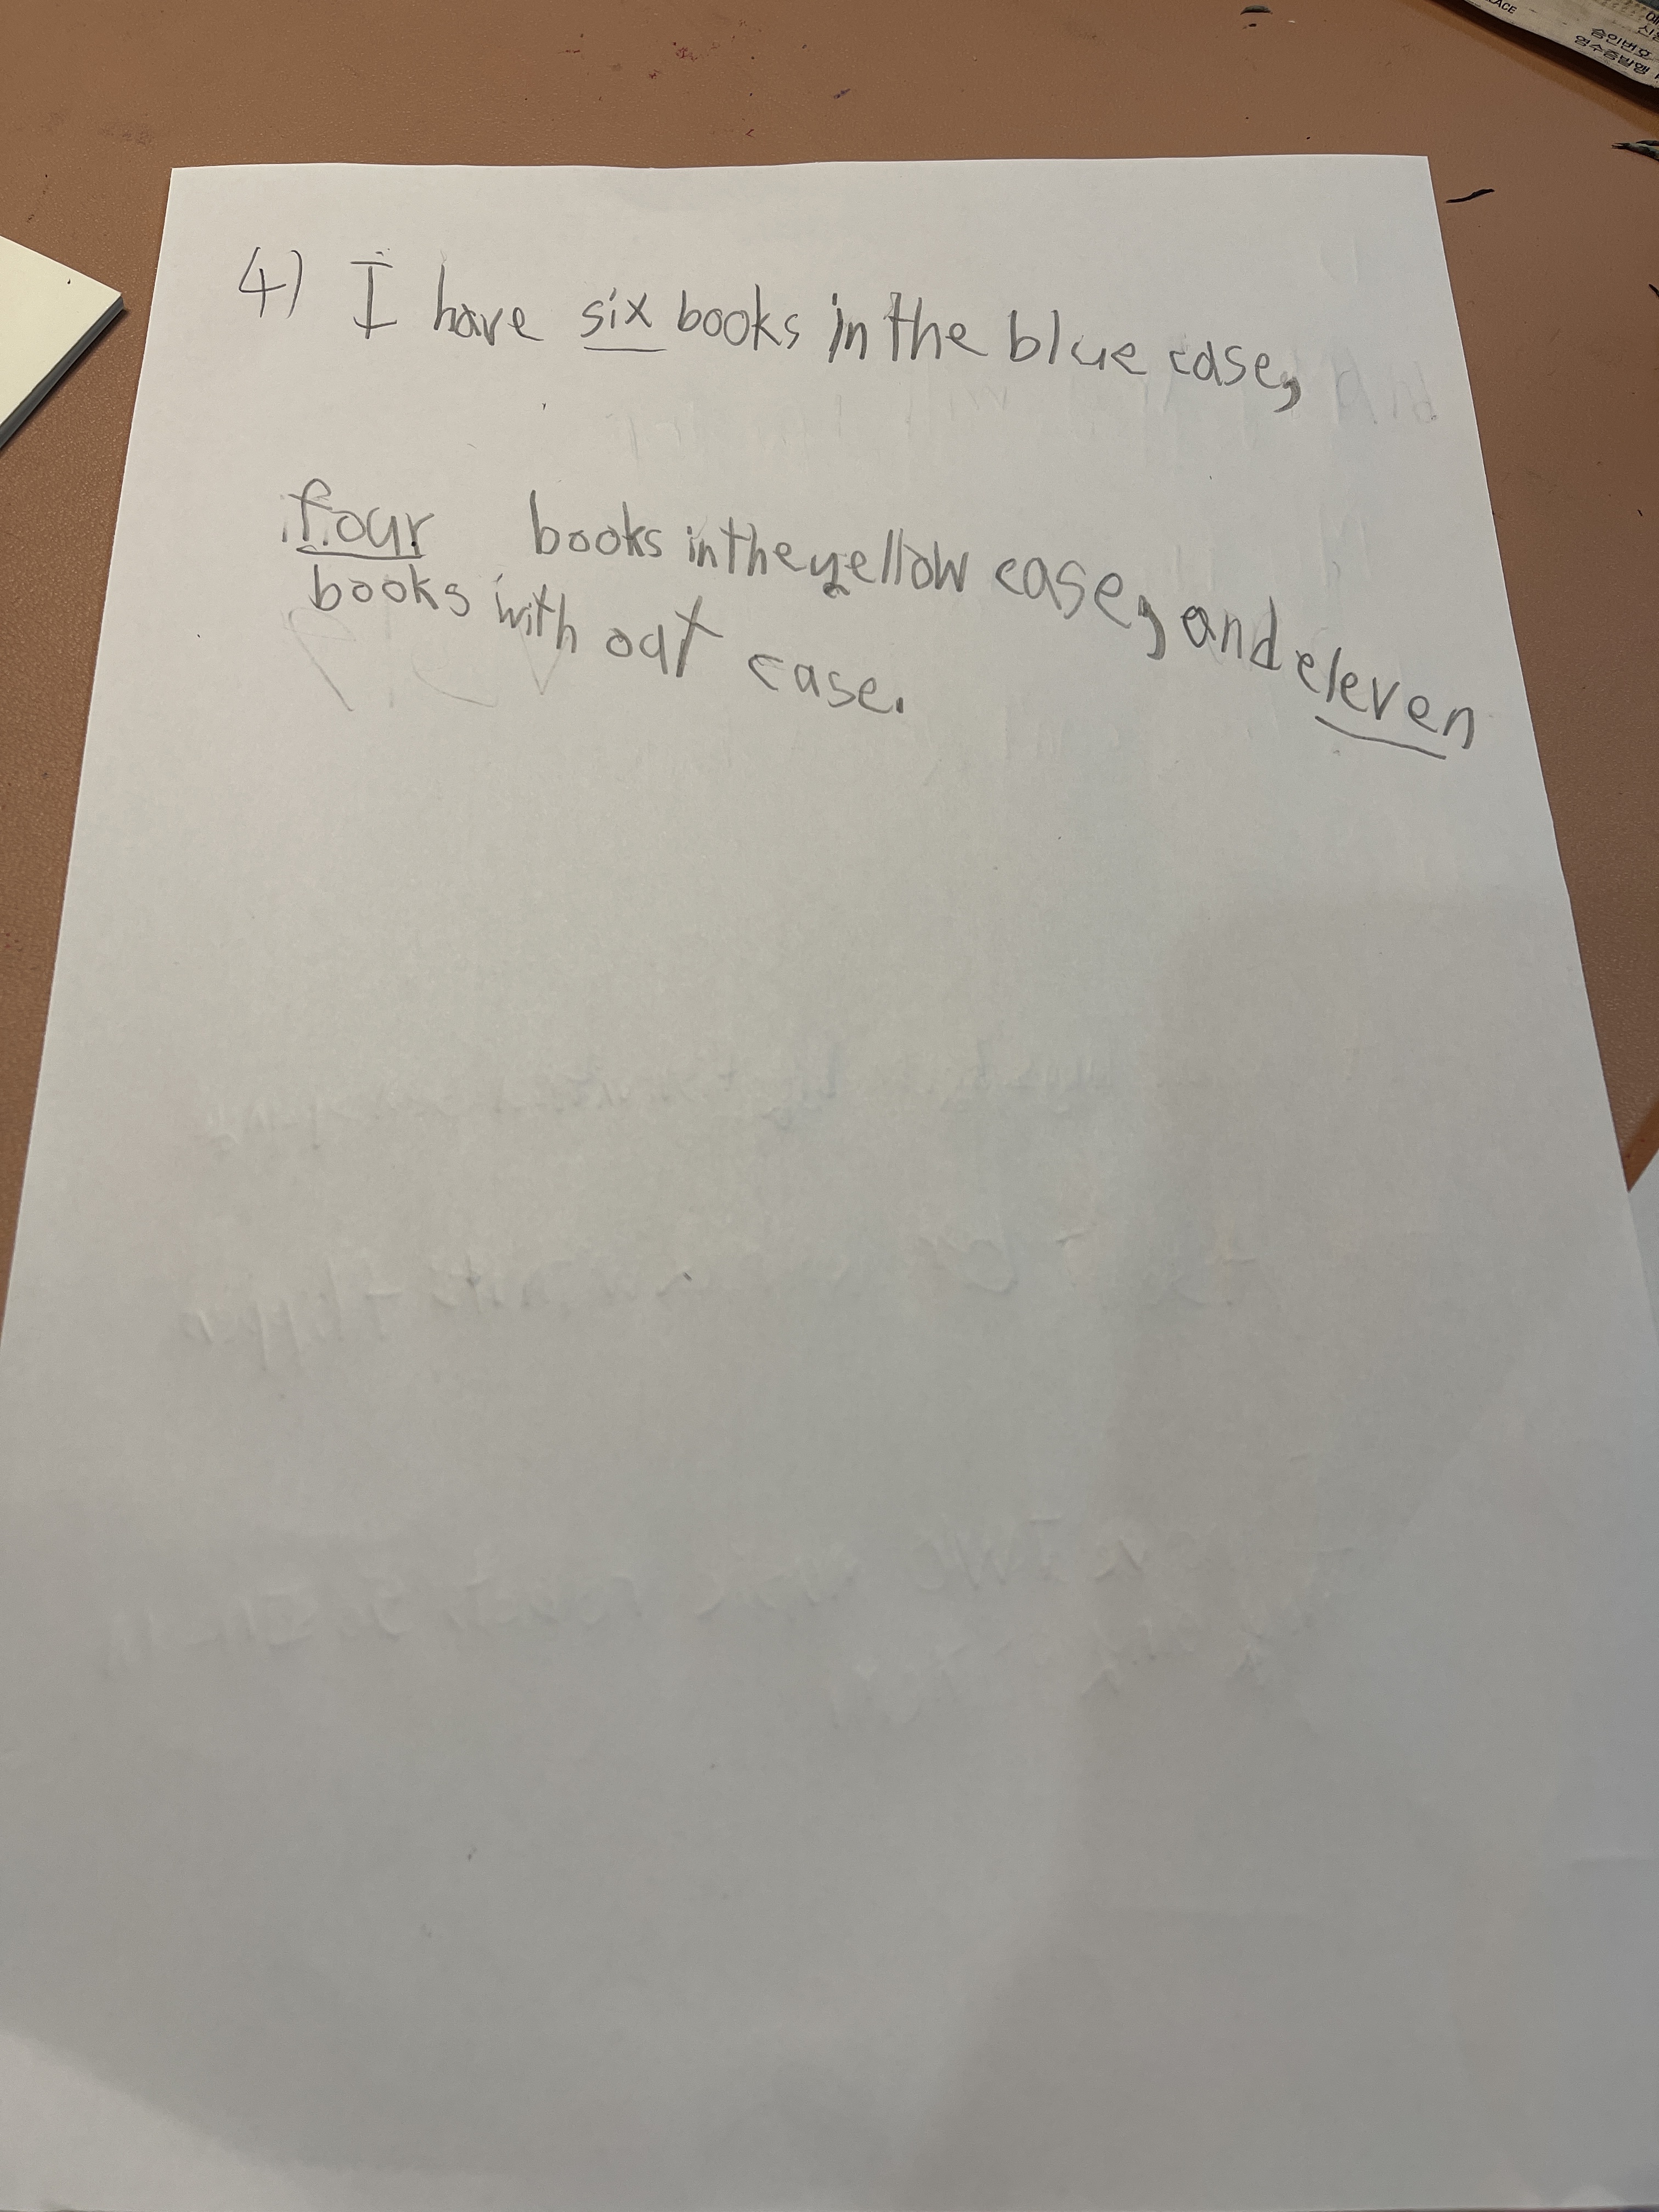 4) I have six books in the blue case,
four books in the yellow case, and eleven
books with out case.